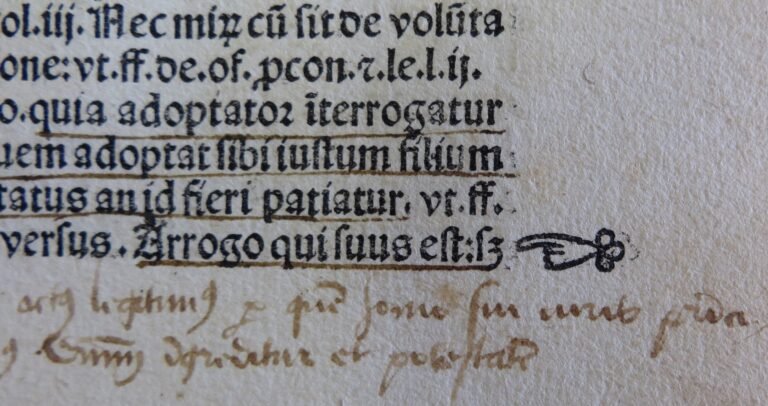 ol.iij. Nec miꝝ cū ſit de volūta
one: vt.ff.de.of. ꝓcon.⁊.le.l.ij.
o.quia adoptator īterrogatur
uem adoptat ſibi iuſtum filium
tatus an id fieri patiatur. vt.ff.
verſus. Arrogo qui ſuus eſt:ſꝫ
actꝰ legitimꝰ ꝑ quē homo ſui iuris
et poteſtatē